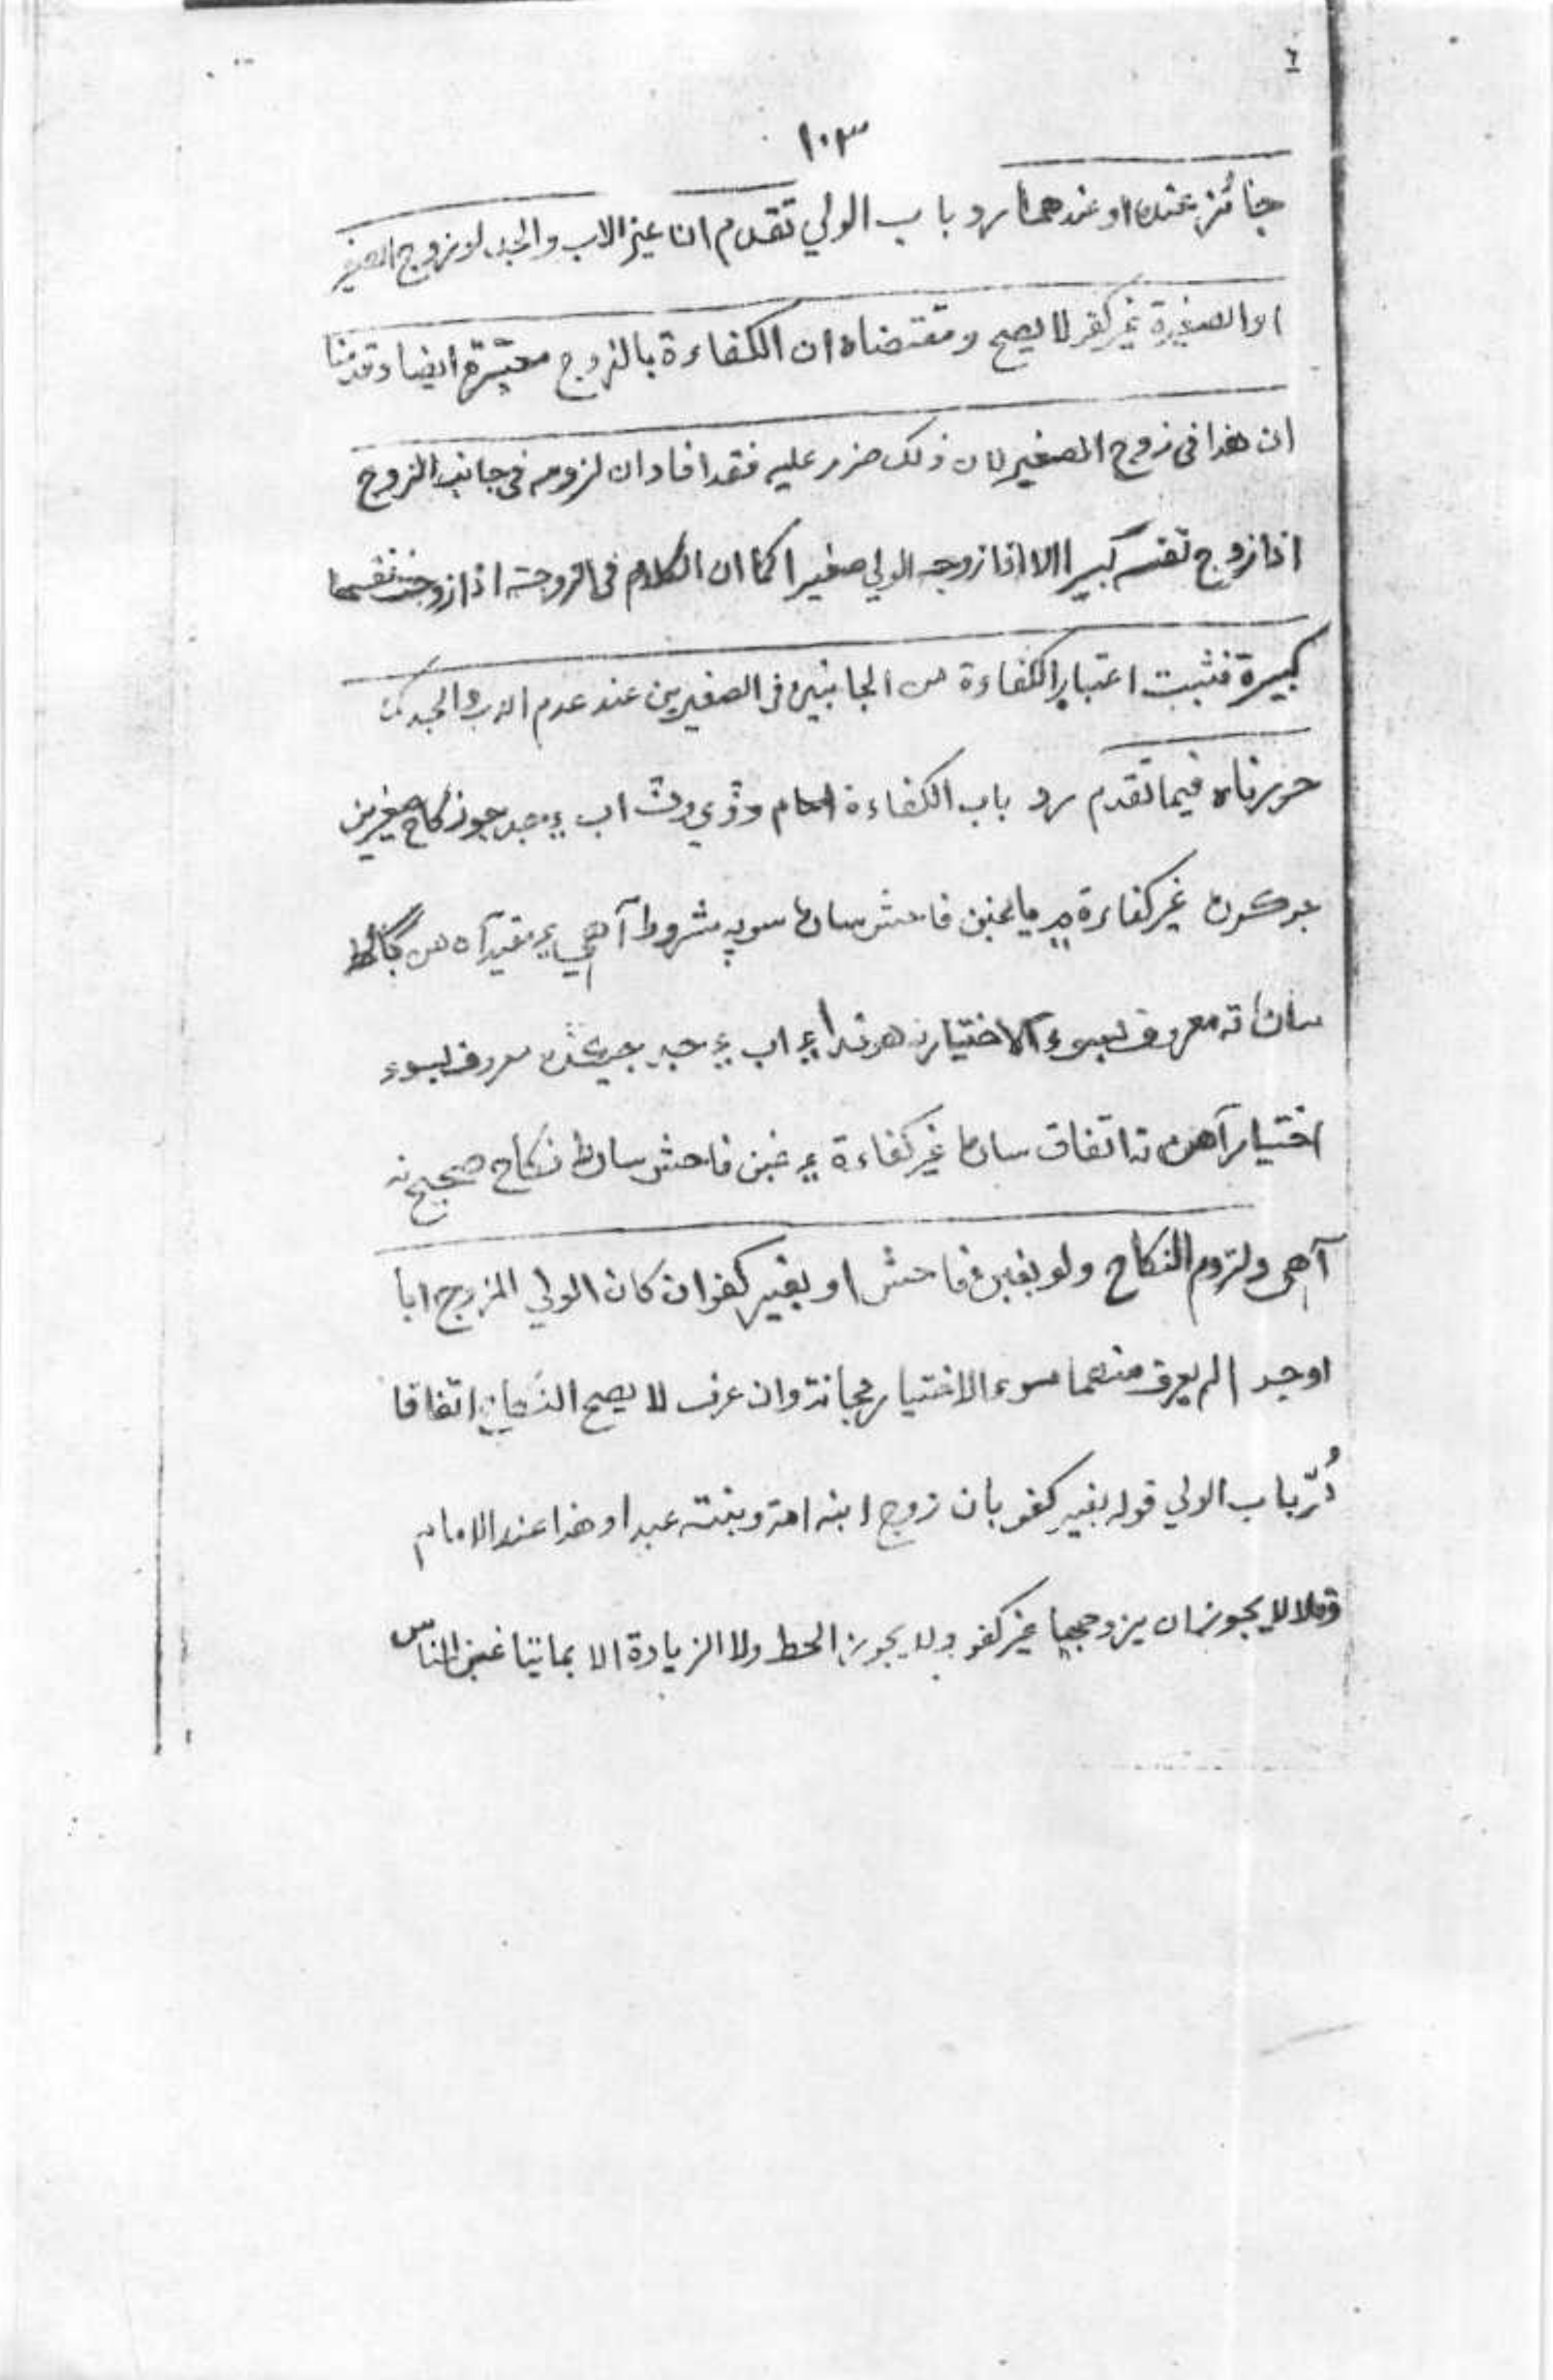 ٢
١٠٣
جائز عنده او عندهما رد باب الولي تقدم ان غير الاب والجد لو زوج الصغير
او الصغيرة غير كفو لا يصح ومقتضاه ان الكفاءة بالزوج معتبرة ايضا وقدمنا
ان هذا فى زوج الصغير لان ذلك ضرر عليه فقد افاد ان لزومه فى جانب الزوج
اذا زوج نفسه كبيرا الا اذا زوجه الولي صغيرا كما ان الكلام فى الزوجة اذا زوجت نفسها
كبيرة فثبت اعتبار الكفاءة من الجانبين فى الصغيرين عند عدم الاب والجد كما
حررناه فيما تقدم رد باب الكفاءة امام وٽ اب ۽ جد جو نكاح صغيرين
جو كرڻ غير كفاءة ۾ يا غبن فاحش سان سو به مشروط آهي ۽ مقيد آه هن ڳالھ
سان ته معروف بسوء الاختيار نه هوندا ۽ اب ۽ جد جيكڏه معروف بسوء
اختيار آهن ته اتفاق سان غير كفاءة ۽ غبن فاحش سان نكاح صحيح نه
آهى ولزوم النكاح ولو بغبن فاحش او بغير كفو ان كان الولي المزوج ابا
او جد الم يعرف منهما سوء الاختيار مجانة وان عرف لا يصح النكاح اتفاقا
دُرّ باب الولي قوله بغير كفو بان زوج ابنه امة وبنته عبدا وهذا عند الامام
وقالا لا يجوز ان يزوجها غير كفو ولا يجوز الحط ولا الزيادة الا بما يتغابن الناس